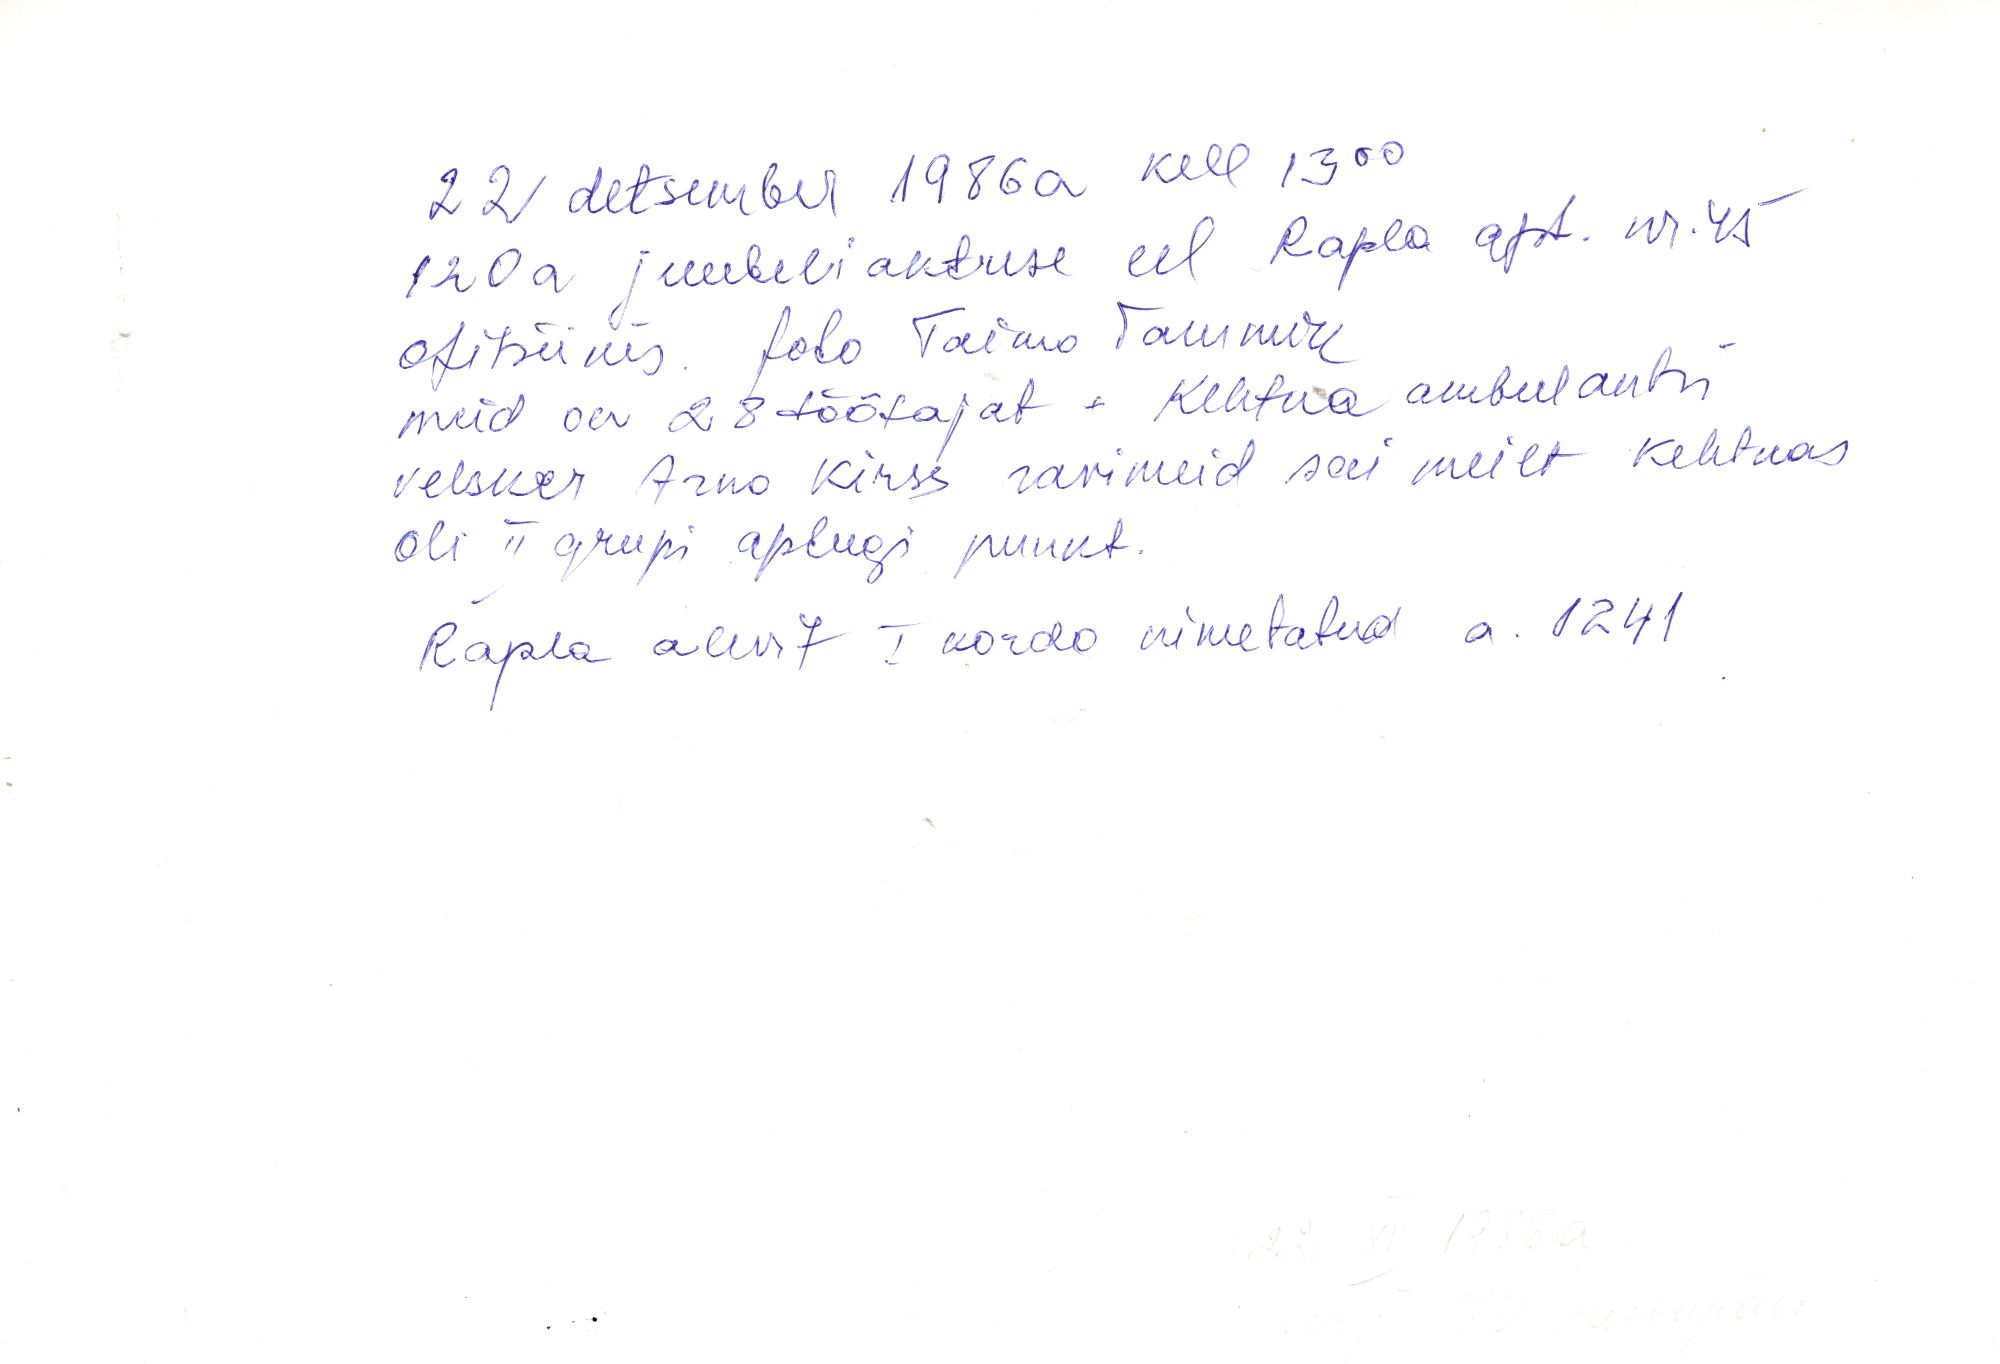 22 detsember 1986a kell 13⁰⁰
120a juubeliaktuse eel Rapla apt. nr. 45
ofitsiinis. foto Taimo Tammik
meid on 28 töötajat + Kehtna ambulantsi
velsker Arno Kirss ravimeid sai meilt Kehtnas
oli II grupi apteegi punkt.
Rapla I kordo nimetatud a. 1241
22 1986a
120